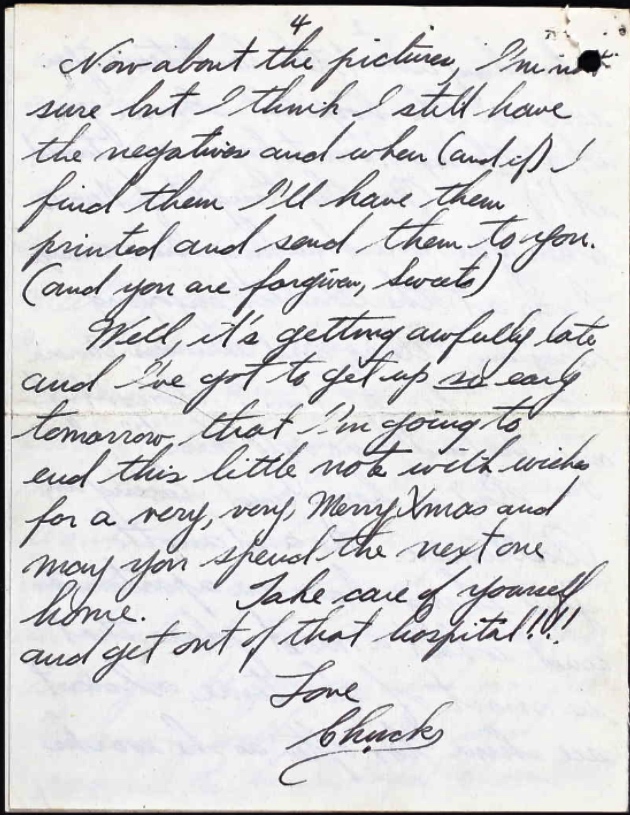 4
Now about the pictures, I'm not
sure but I think I still have
the negatives and when (and if) I
find them I'll have them
printed and send them to you.
(and you are forgiven, Sweets)
Well, it's getting awfully late
and I've got to get up so early
tomorrow, that I'm going to
end this little note with wishes
for a very, very, Merry Xmas and
may you spend the next one
home. Take care of yourself
and get out of that hospital!!!!
Love
Chuck